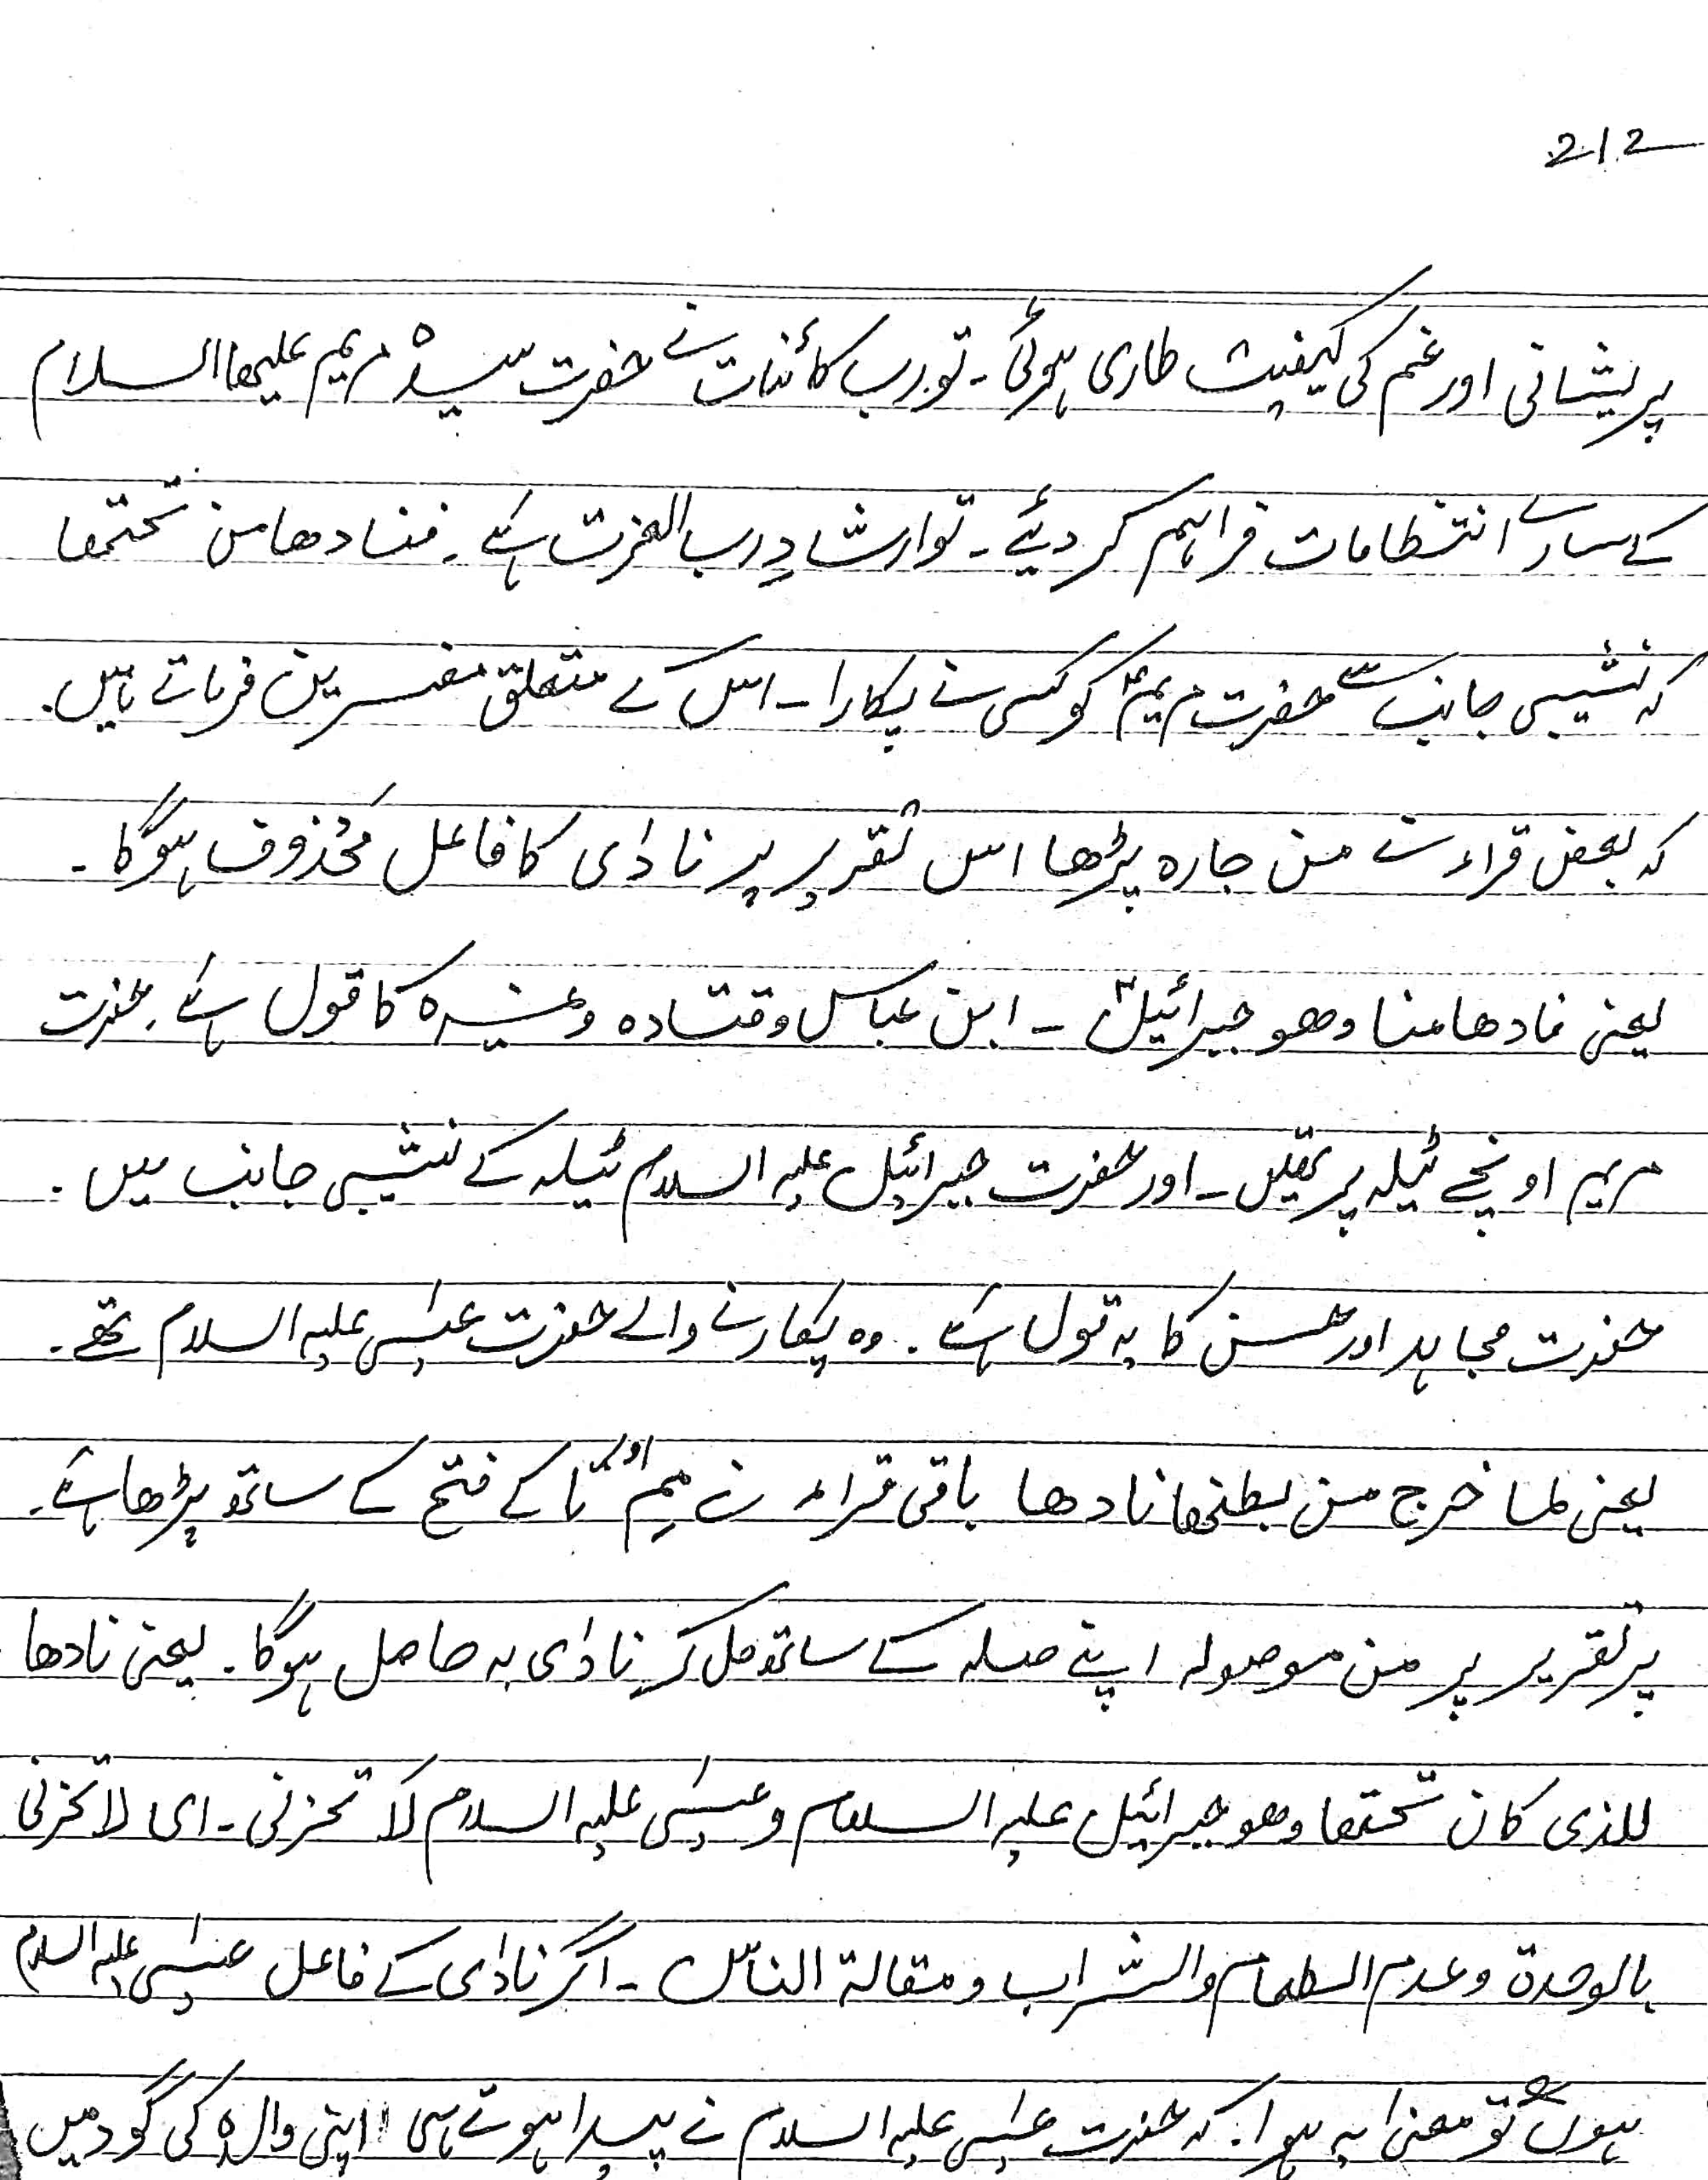 212
پریشانی اور غم کی کیفیت طاری ہوگئی ۔ تو رب کائنات نے حضرت سیدہ مریم علیھا السلام
کے سارے انتظامات فراہم کر دیئے ۔ تو ارشادِ رب العزت ہے ۔ فنادھا من تحتھا
کہ نشیبی جانب سے حضرت مریمؑ کو کسی نے پکارا ۔ اس کے متعلق مفسرین فرماتے ہیں ۔
کہ بعض قراء نے من جارہ پڑھا اس تقریر پر نادٰی کا فاعل محذوف ہوگا ۔
یعنی نادھا منا وھو جبرائیلؑ ۔ ابن عباس و قتادہ وغیرہ کا قول ہے ۔ حضرت
مریم اونچے ٹیلہ پر تھیں ۔ اور حضرت جبرائیل علیہ السلام ٹیلہ کے نشیبی جانب میں ۔
حضرت مجاہد اور حسن کا یہ قول ہے ۔ وہ پکارنے والے حضرت عیسٰی علیہ السلام تھے ۔
یعنی لما خرج من بطنھا نادھا باقی قراء نے میم اور تا کے فتح کے ساتھ پڑھا ہے ۔
پر تقریر پر من موصولہ اپنے صلہ کے ساتھ مل کر نادٰی بہ حاصل ہوگا ۔ یعنی نادھا
للذی کان تحتھا وھو جبرائیل علیہ السلام و عیسٰی علیہ السلام لا تحزنی ۔ ای لا تحزنی
بالوحدۃ و عدم الطعام والشراب و مقالۃ الناس ۔ اگر نادٰی کے فاعل عیسٰی علیہ السلام
ہوں تو معنٰی یہ ہوا ۔ کہ حضرت عیسٰی علیہ السلام نے پیدا ہوتے ہی اپنی والدہ کی گود میں